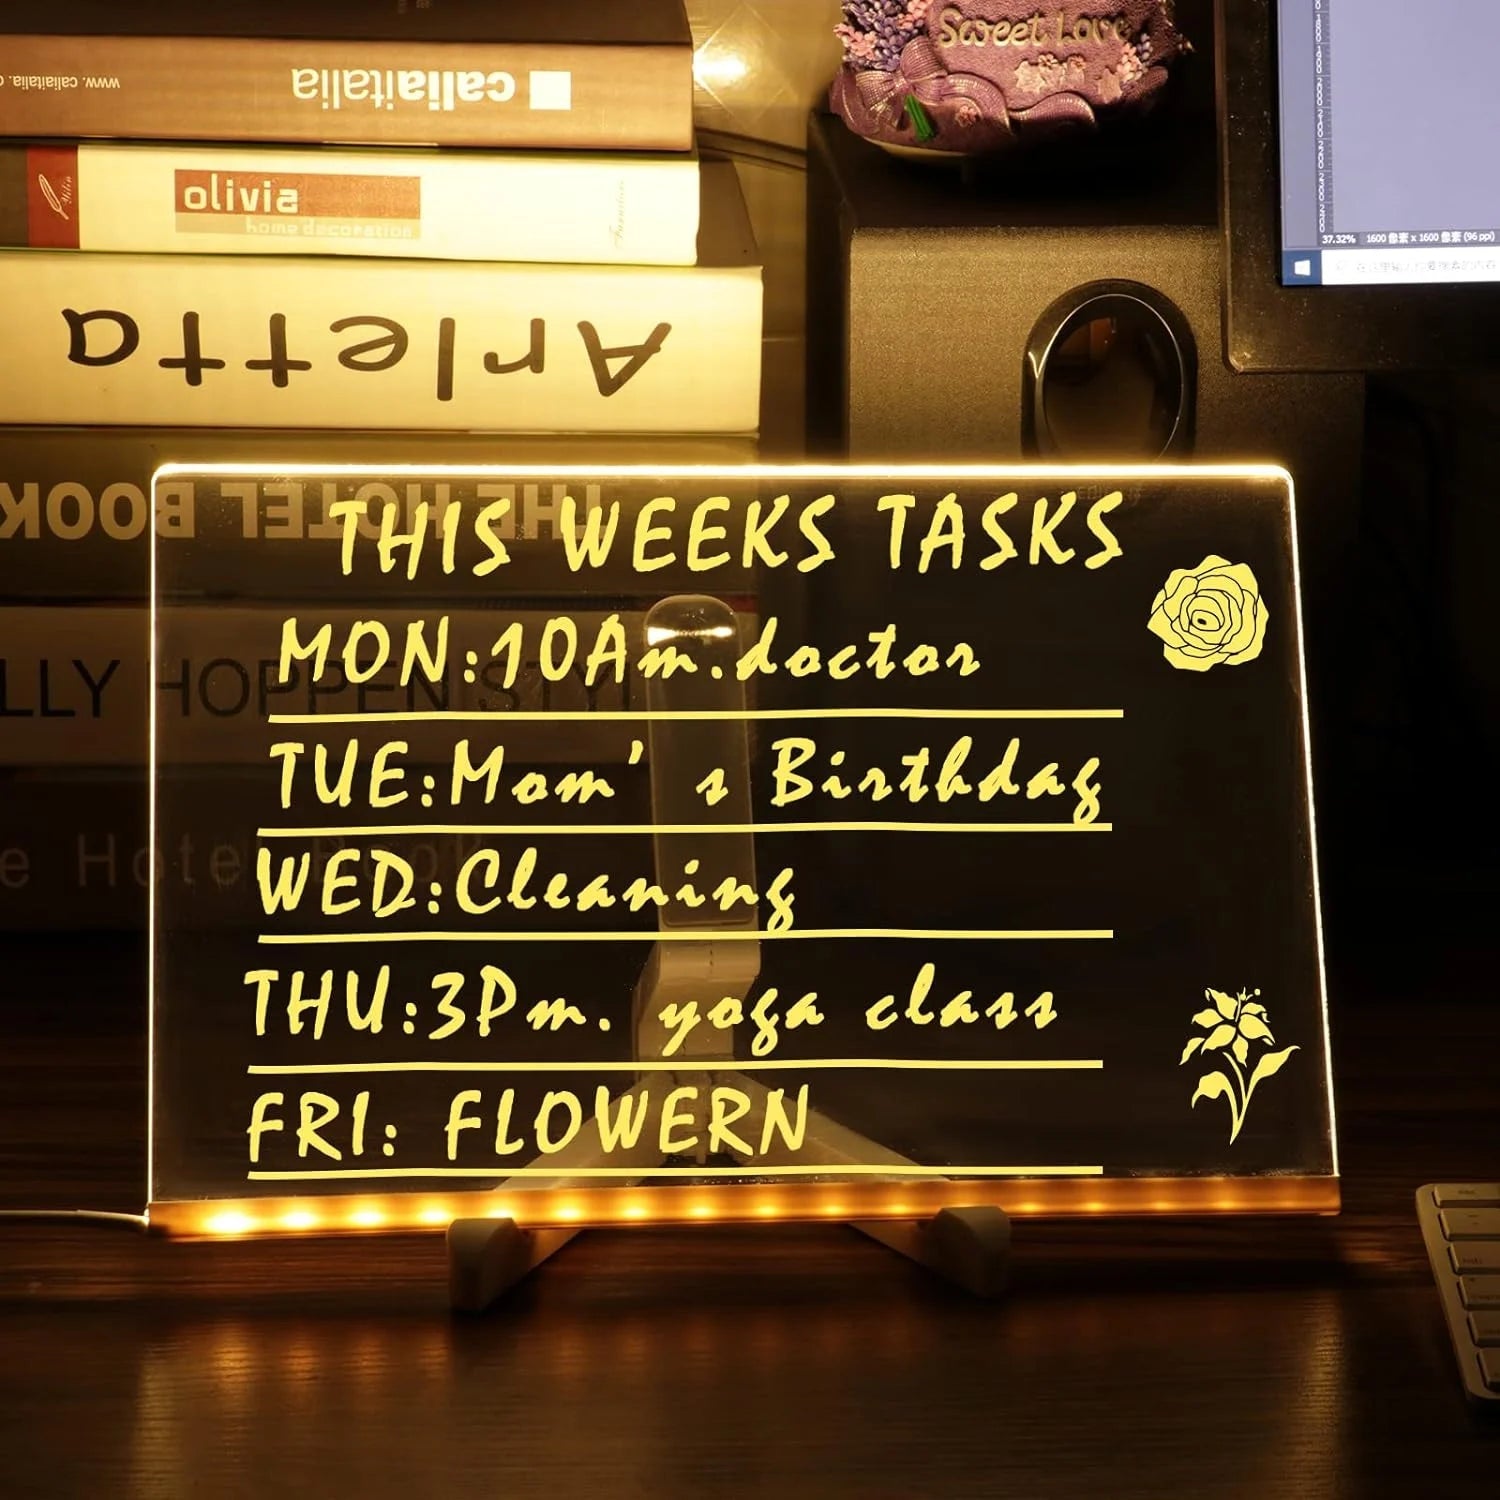 www.caliaitalia.c
caliaitalia
olivia
home decoration
Arletta
THE HOTEL BOOK
LLY HOPPEN STYL
e Hotel Book
Sweet Love
37.32% 1600 像素 x 1600 像素 (96 ppi)
在这里输入你要搜索的内容
THIS WEEKS TASKS
MON:10Am.doctor
TUE:Mom's Birthday
WED:Cleaning
THU:3Pm. yoga class
FRI: FLOWERN